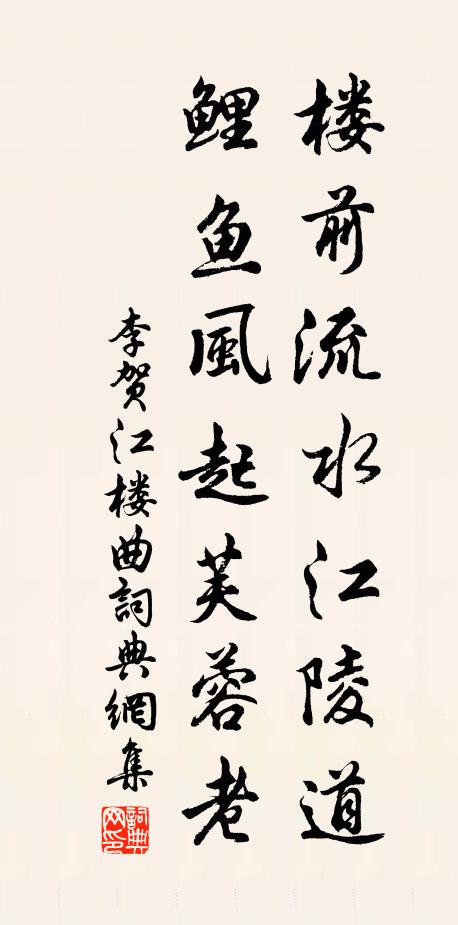 楼前流水江陵道
鯉鱼風起芙蓉老
李贺江楼曲詞典網集
詞典网印